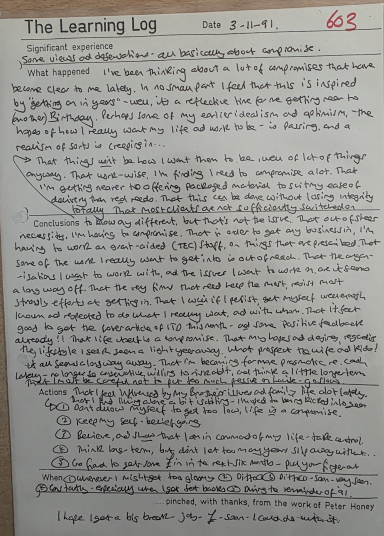 The Learning Log Date 3-11-91. 603
Significant experience
Some views and observations - all basically about compromise.
What happened I've been thinking about a lot of compromises that have
become clear to me lately. In no small part I feel that this is inspired
by 'getting on in years' - well, it's a reflective time for me getting near to
another Birthday. Perhaps some of my earlier idealism and optimism, - the
hopes of how I really want my life and work to be - is passing, and a
realism of sorts is creeping in...
That things won't be how I want them to be, well of lot of things
anyway. That work-wise, I'm finding I need to compromise a lot. That
I'm getting nearer to offering packaged material to suit my ease of
delivery than real need. That this can be done without losing integrity
totally. That most clients are not sufficiently switched on
Conclusions to know any different, but that's not the issue. That out of sheer
necessity, I'm having to compromise. That in order to get any business, I'm
having to work on grant-aided (TEC) stuff, on things that are prescribed. That
some of the work I really want to get into is out of reach. That the organ-
isations I want to work with, and the issues I want to work on, are it seems
a long way off. That the very firms that need help the most, resist most
strongly efforts at getting in. That I will if I persist, get myself well enough
known and respected to do what I really want, and with whom. That it felt
good to get the cover article of ITD this month - and some positive feedback
already! That life itself is a compromise. That my hopes and desires, regarding
the lifestyle I seek seem a light year away. What prospect the wife and kids!
It all seems a long way away. That I'm becoming far more prescriptive, &
later - no longer so conservative, willing to risk a bit, and think a little longer term
That I must be careful not to put too much
Actions That I feel influenced by my Brother's views and family life a lot lately,
① Don't allow myself to get too low, life is a compromise.
② Keep my self-belief going
③ Believe, and show that I am in command of my life - take control.
④ Think long-term, but don't let too many years slip away without...
⑤
When ① whenever I might get too gloomy ② Ditto ③ Ditto
... pinched, with thanks, from the work of Peter Honey
I hope I get a big break - job - £ - soon - I could do with it.